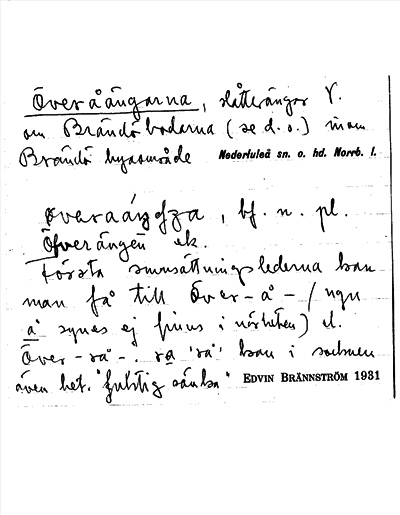 Överåängarna, slåtterängar V.
om Brändöbodarna (se d. o.) inom
Brändö byaområde Nederluleå sn. o. hd. Norrb. l.
bf. n. pl.
Öfverängen ek.
Första smnsättningslederna kan
man få till Över-å- (ngn
å synes ej finnas i närheten) el.
Över-rå-. ra 'rå' kan i socknen
även bet. "fuktig sänka" EDVIN BRÄNNSTRÖM 1931